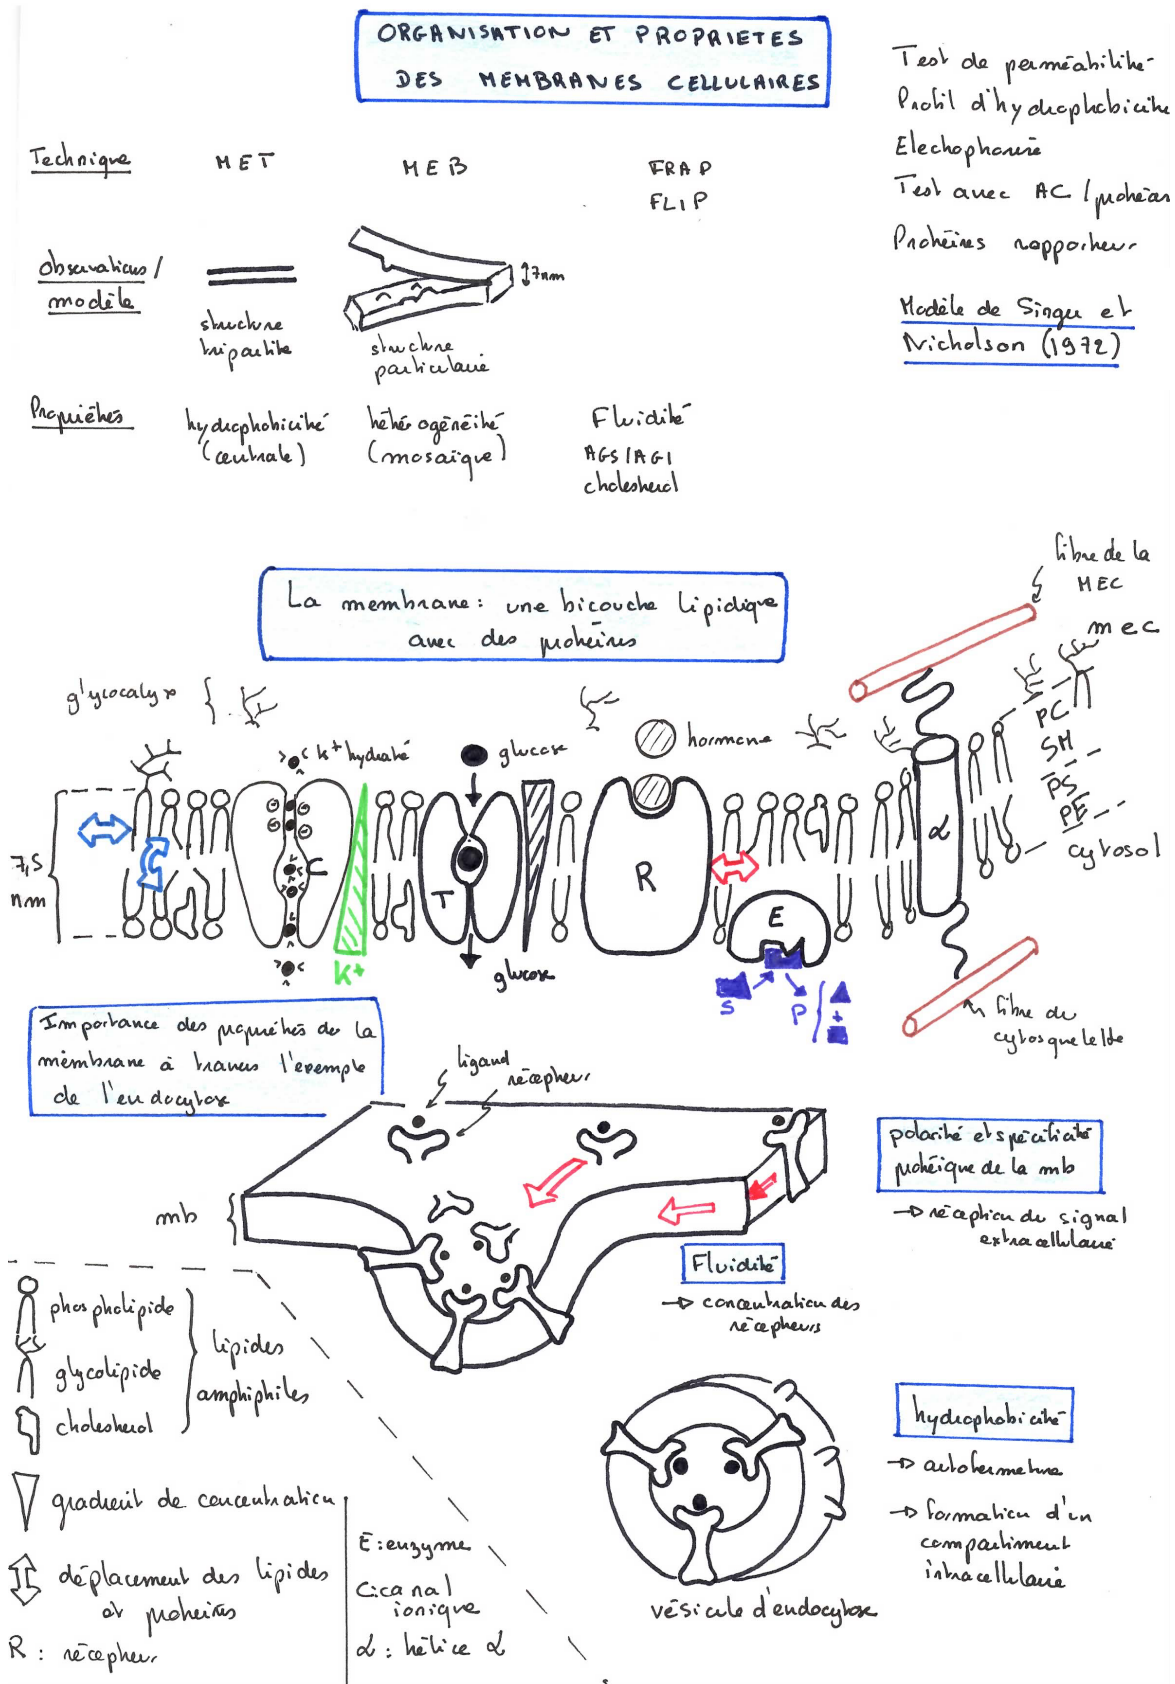 ORGANISATION ET PROPRIETES
DES MEMBRANES CELLULAIRES
Test de perméabilité
Profil d'hydrophobicité
Electrophorèse
Test avec AC / protéases
Protéines rapporteur
Modèle de Singer et
Nicholson (1972)
Technique
MET
MEB
FRAP
FLIP
Observations /
modèle
structure
tripartite
7nm
structure
particulaire
Propriétés
hydrophobicité
(centrale)
hétérogénéité
(mosaïque)
Fluidité
AGS/AGI
cholesterol
La membrane : une bicouche lipidique
avec des protéines
fibre de la
MEC
mec
glycocalyx
K+ hydraté
glucose
hormone
PC
SM
PS
PE
cytosol
7,5
nm
C
T
R
E
α
K+
glucose
S
P
+
fibre du
cytosquelette
Importance des propriétés de la
membrane à travers l'exemple
de l'endocytose
ligand
récepteur
mb
polarité et spécificité
protéique de la mb
→ réception du signal
extracellulaire
Fluidité
→ concentration des
récepteurs
hydrophobicité
→ autofermeture
→ formation d'un
compartiment
intracellulaire
vésicule d'endocytose
phospholipide
glycolipide
cholesterol
lipides
amphiphiles
gradient de concentration
déplacement des lipides
et protéines
R : récepteur
E : enzyme
C : canal
ionique
α : hélice α